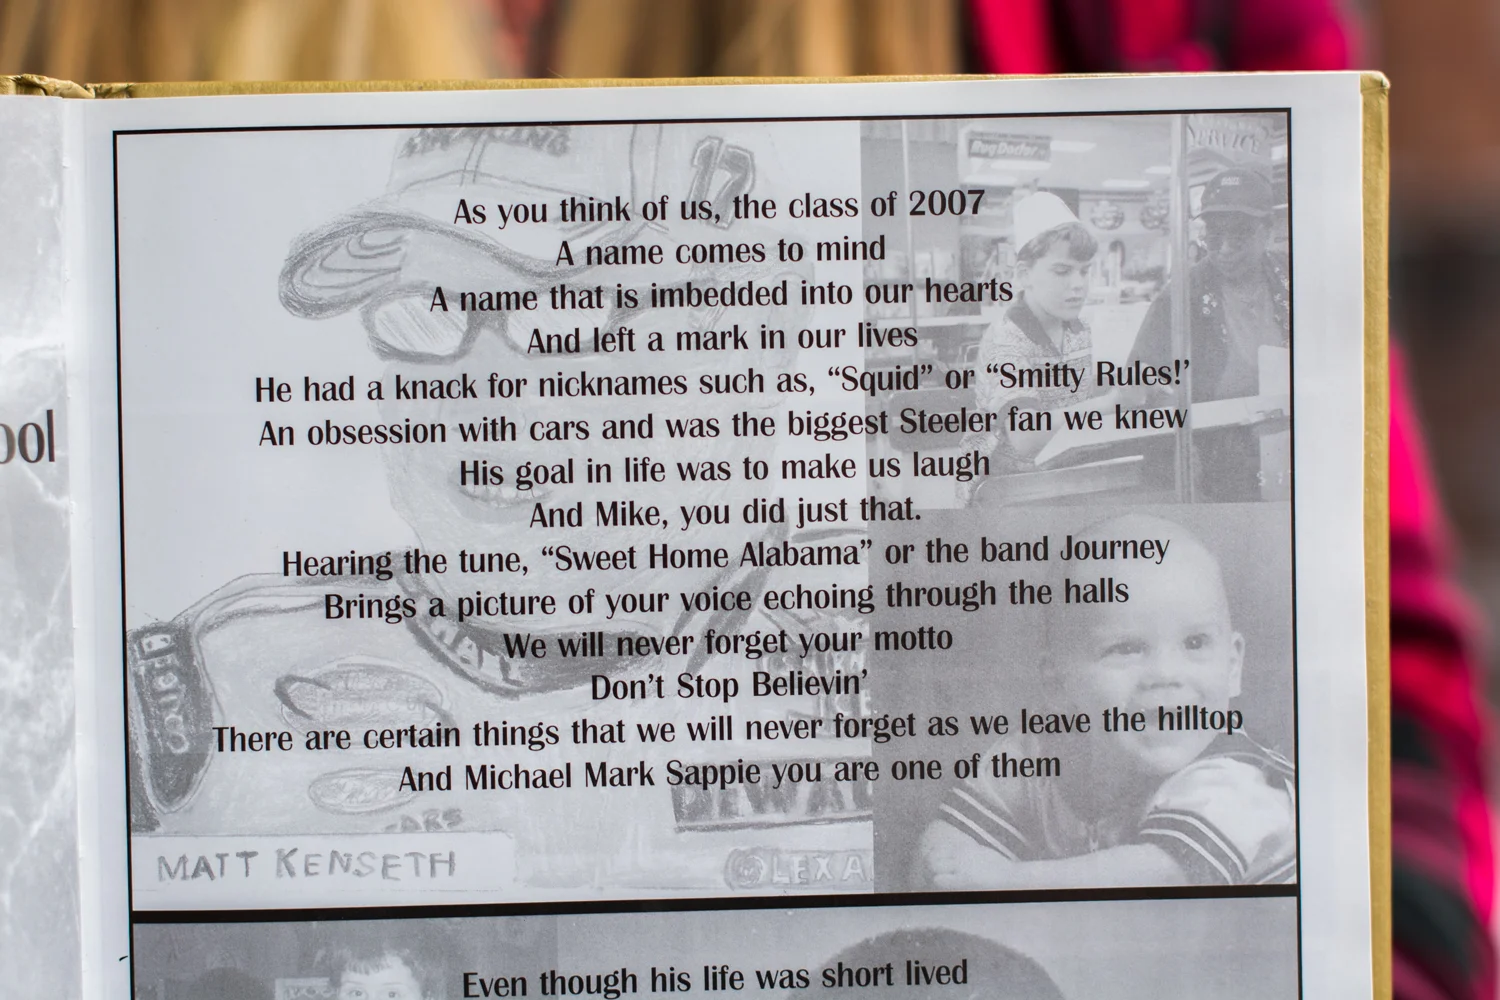 ool
17
RugDoctor
SERVICE
As you think of us, the class of 2007
A name comes to mind
A name that is imbedded into our hearts
And left a mark in our lives
He had a knack for nicknames such as, “Squid” or “Smitty Rules!’
An obsession with cars and was the biggest Steeler fan we knew
His goal in life was to make us laugh
And Mike, you did just that.
Hearing the tune, “Sweet Home Alabama” or the band Journey
Brings a picture of your voice echoing through the halls
We will never forget your motto
Don’t Stop Believin’
There are certain things that we will never forget as we leave the hilltop
And Michael Mark Sappie you are one of them
DEWALT
MATT KENSETH
LEXA
Even though his life was short lived